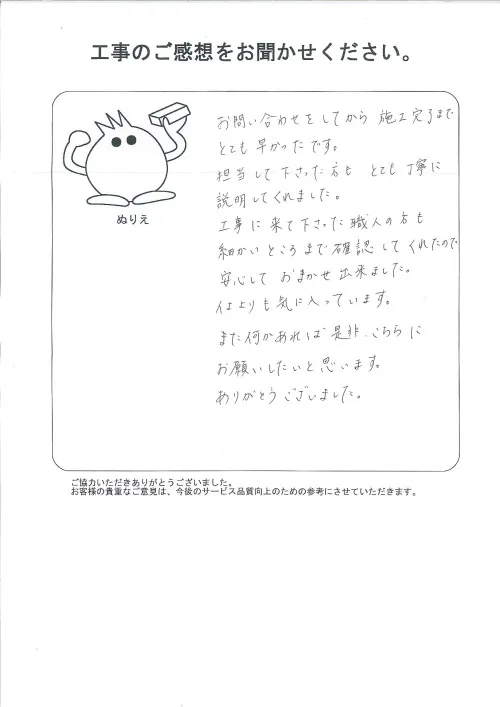 工事のご感想をお聞かせください。
お問い合わせをしてから 施工完了まで
とても 早かったです。
担当して下さった方も とても丁寧に
説明してくれました。
工事に来て下さった職人の方も
細かいところまで確認してくれたので
安心して おまかせ出来ました。
仕上よりも気に入っています。
また何かあれば是非、こちらに
お願いしたいと思います。
ありがとうございました。
ぬりえ
ご協力いただきありがとうございました。
お客様の貴重なご意見は、今後のサービス品質向上のための参考にさせていただきます。